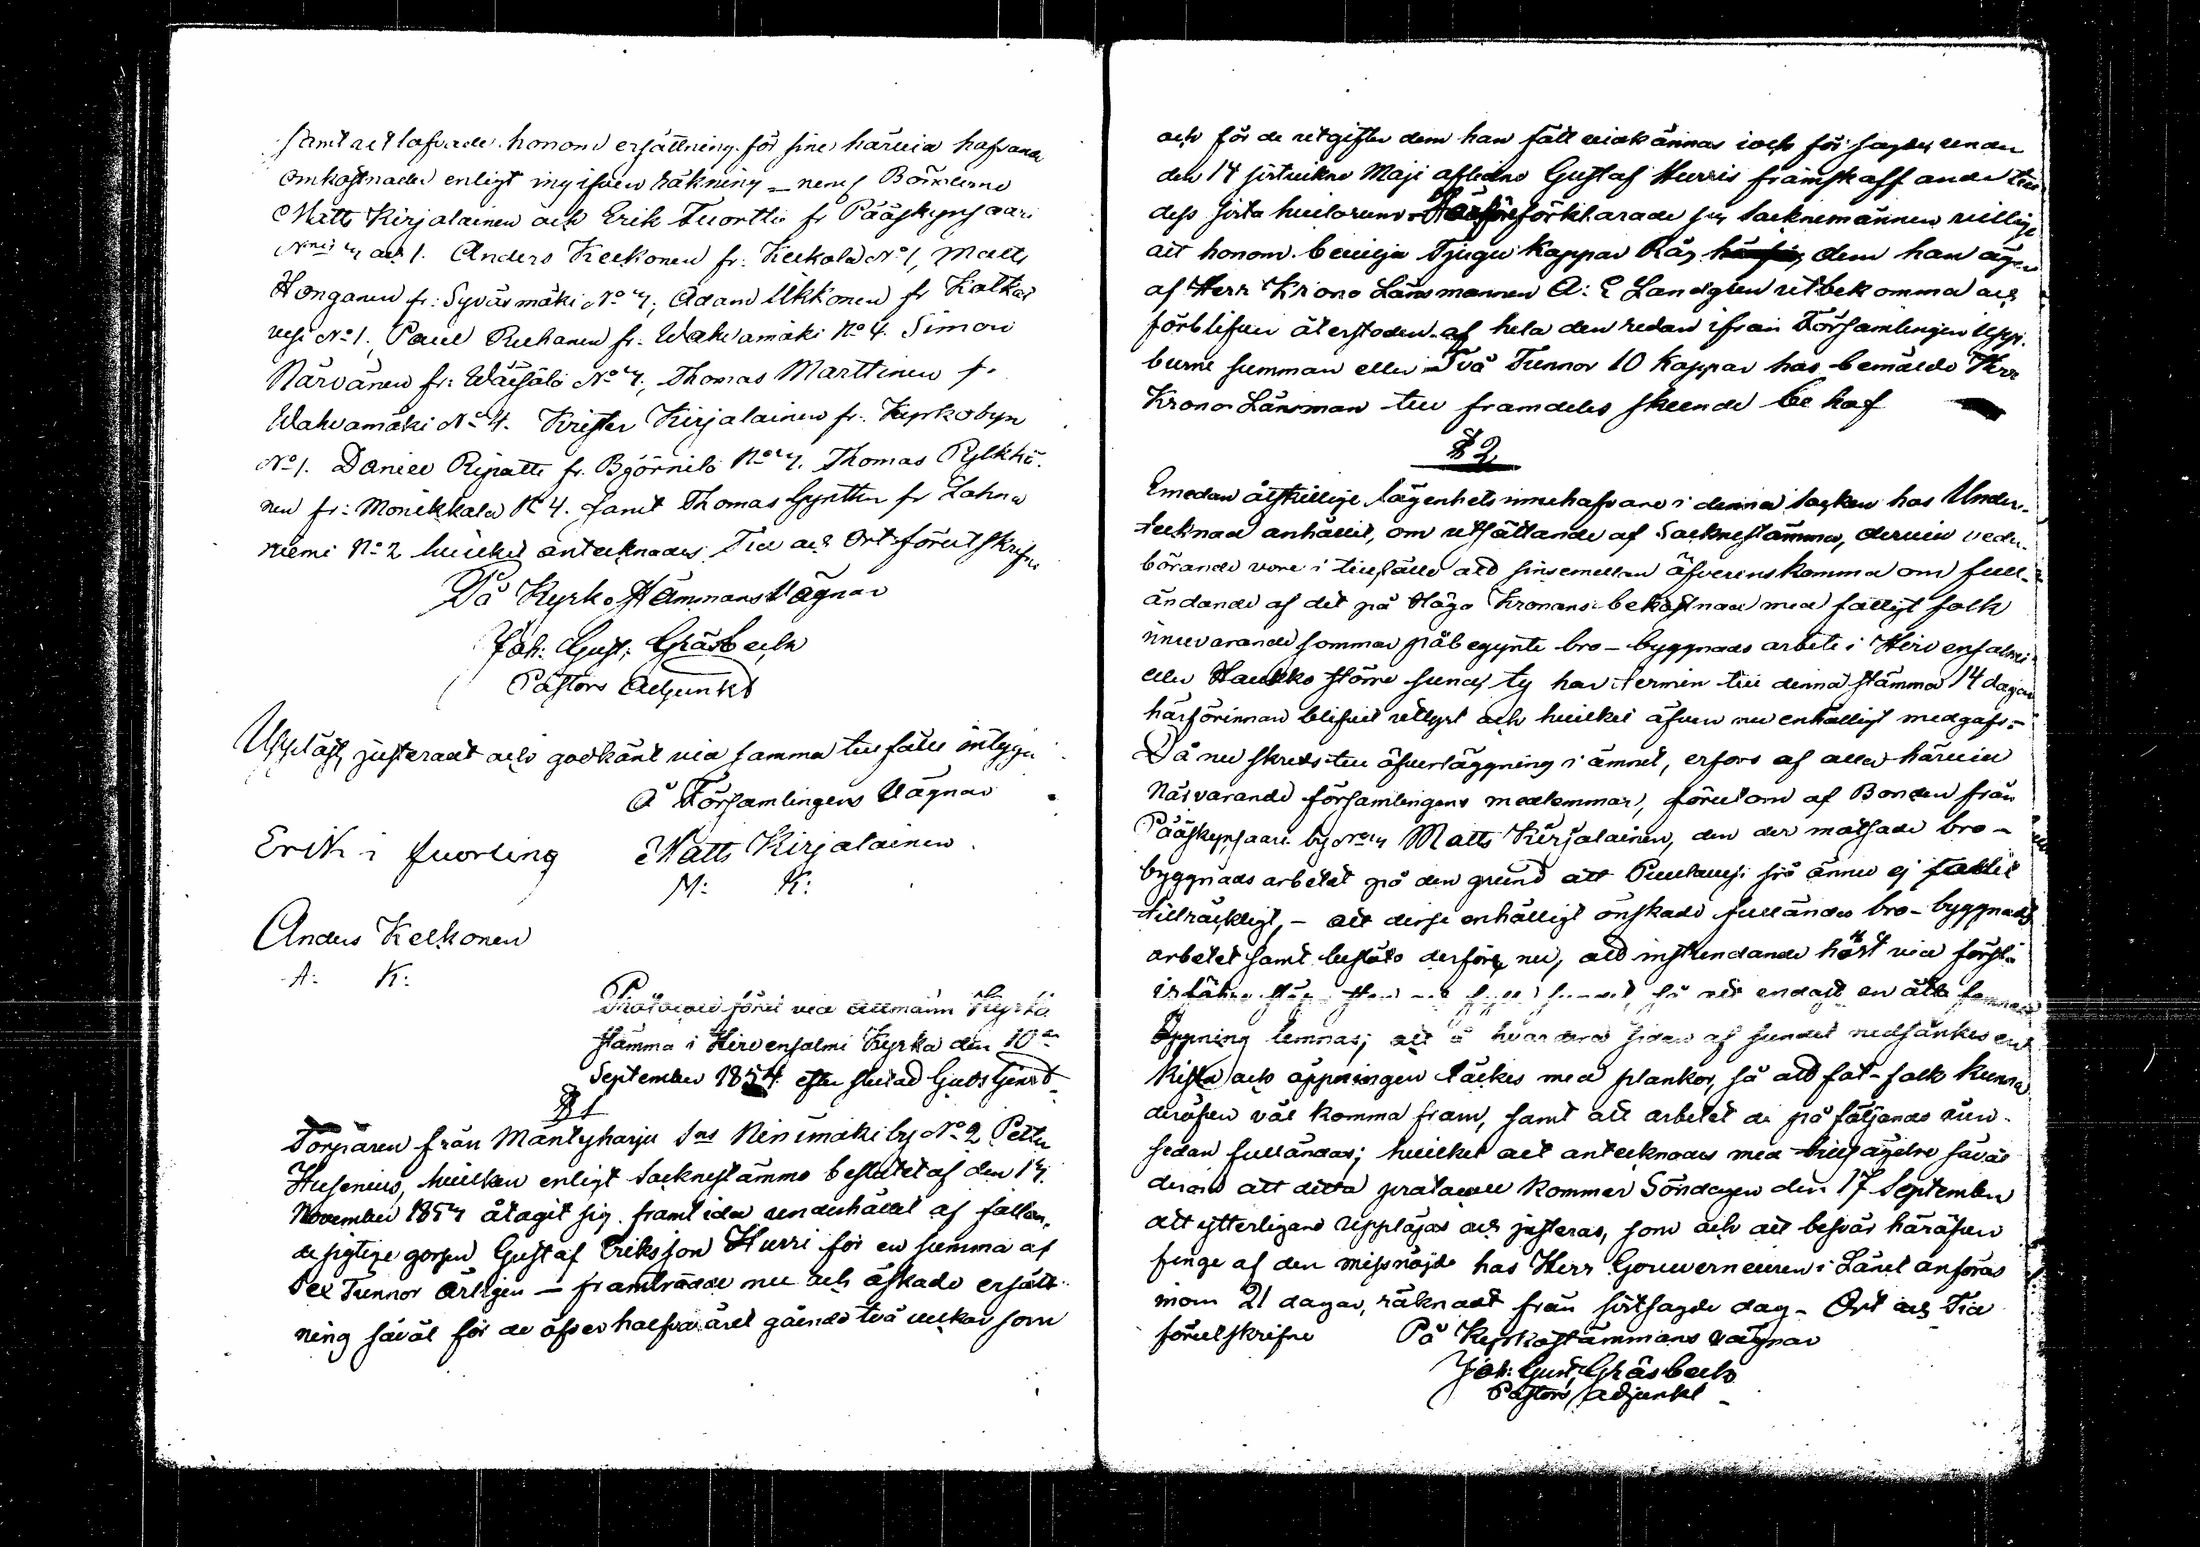 samt utlofvade honom ersättning för sine härvid hafvande
omkostnader enligt ingifven räkning – neml Bönderne
Matts Kirjalainen och Erik Tuortti fr Pääskynsaari
och 1. Anders Keckonen fr: Keckola No 1, Matts
Honganen fr: Syväsmäki No 4; Adam Ukkonen fr Kalka
vesi No 1, Paul Reehanen fr. Wahvamäki No 4. Simon
Närvänen fr: Wäisälä No 4; Thomas Marttinen fr
Wahvamäki No 4. Krister Kirjalainen fr. Kyrkobyn
No 1. Daniel Ripatti fr. Björnilä No 4. Thomas Pylkkä
nen fr: Monikkala No 4. samt Thomas Gynther fr Lahna
niemi No 2 hvilket antecknades Tid och Ort förutskrifne
På Kyrko Stämmans Vägnar
Joh: Gust: Gräsbeck
Pastors Adjunkt
Uppläst, justeradt och godkänt vid samma tillfälle intyga
Å Församlingens Vägnar
Erik i tuorting Matts Kirjalainen
M: K:
Anders Kelkonen
A: K:
Protocoll fördt vid allmänn Kyrko
stämma i Hirvensalmi Kyrka den 10de
September 1854 efter slutad Gudstjenst
§ 1
Torparen från Mäntyharju Sns Ninimäki by No 2 Petter
Husenius, hvilken enligt Socknestämmo beslutet af den 14
November 1854 åtagit sig framtida underhållet af fallan-
desigtige gossen Gustaf Eriksson Hurri för en summa af
Sex Tunnor årligen – framträdde nu och äskade ersätt-
ning såväl för de öfver halfva året gående två veckor som
och för de utgifter dem han fått vidkännas och för sagde under
den 14 sistvikne Maji aflidne Gustaf Hurris framskaffande till
dess sista hvilorum – förklarade sig Socknemännen villige
att honom bevilja Tjugu Kappar Råg dem han äger
af Herr Krono Länsmannen A: E Landgren utbekomma och
förblifver återstoden af hela den redan ifrån Församlingen upp-
burne summan eller Två Tunnor 10 Kappar hos bemälde Herr
Krono Länsman till framdeles skeende behof
§ 2
Emedan åtskillige lägenhets innehafvare i denna socken hos Under-
tecknad anhållit, om utsättande af Socknestämma, dervid veder-
börande vore i tillfälle att sinsemellan öfverenskomma om full-
ändande af det på Höga Kronans bekostnad med fattigt folk
innevarande sommar påbegynte bro-byggnads arbete i Hirvensalmi
eller Haukko större sund; ty har termin till denna stämma 14 dagar
härförinnan blifvit utlyst och hvilket äfven nu enhälligt medgafs. –
Då nu skreds till öfverläggning i ämnet, erfors af alla härvid
Närvarande församlingens medlemmar, förutom af Bonden från
Pääskynsaari by Matts Kirjalainen, den der motsade bro-
byggnads arbetet på den grund att Puulavesi sjö ännu ej fallit
tillräckligt, – att desse enhälligt önskade fullända bro-byggnads
arbetet samt beslöto derföre nu, att instundande höst vid första
endast en åtta famnars
Öppning lemnas; att å hvardera sidan af sundet nedsänkes en
Kista och öppningen täckes med plankor, så att fot-folk kunna
deröfver väl komma fram, samt att arbetet de på följande åren
sedan fulländas; hvilket allt antecknades med tillsägelse såväl
derom att detta protocoll kommer Söndagen den 17 September
att ytterligare uppläsas och justeras, som och att besvär häröfver
finge af den missnöjde hos Herr Gouverneuren i Länet anföras
inom 21 dagar, räknadt från sistsagde dag – Ort och Tid
förutskrifne På Kyrkostämmans vägnar
Joh: Gust, Gräsbeck
Pastors Adjunkt